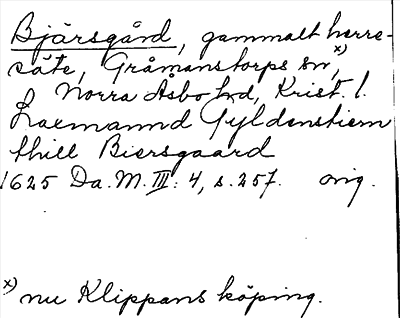 Bjärsgård, gammalt herre-
säte, Gråmanstorps sn,x)
Norra Åsbo hd, Krist. l.
Laxmannd Gyldenstiern
thill Biersgaard
1625 Da. M. III: 4, s. 257. orig.
x) nu Klippans köping.